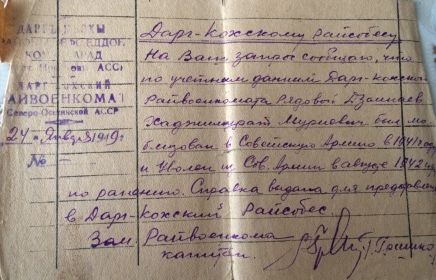 ДАРГ
КОМ АРАД
АССР
РАЙВОЕНКОМАТ
Северо-Осетинской АССР
24 " Января 1949 г.
№
Дарг-Кохскому Райсобесу
На Ваш запрос сообщаю, что
по учетным данным Дарг-Кохского
Райвоенкомата Рядовой
Хаджимурат Муриевич был мо-
билизован в Советскую Армию в 1941 году
и Уволен из Сов. Армии в августе 1942 г.
по ранению. Справка выдана для
в Дарг-Кохский Райсобес.
Зам. Райвоенкома
капитан